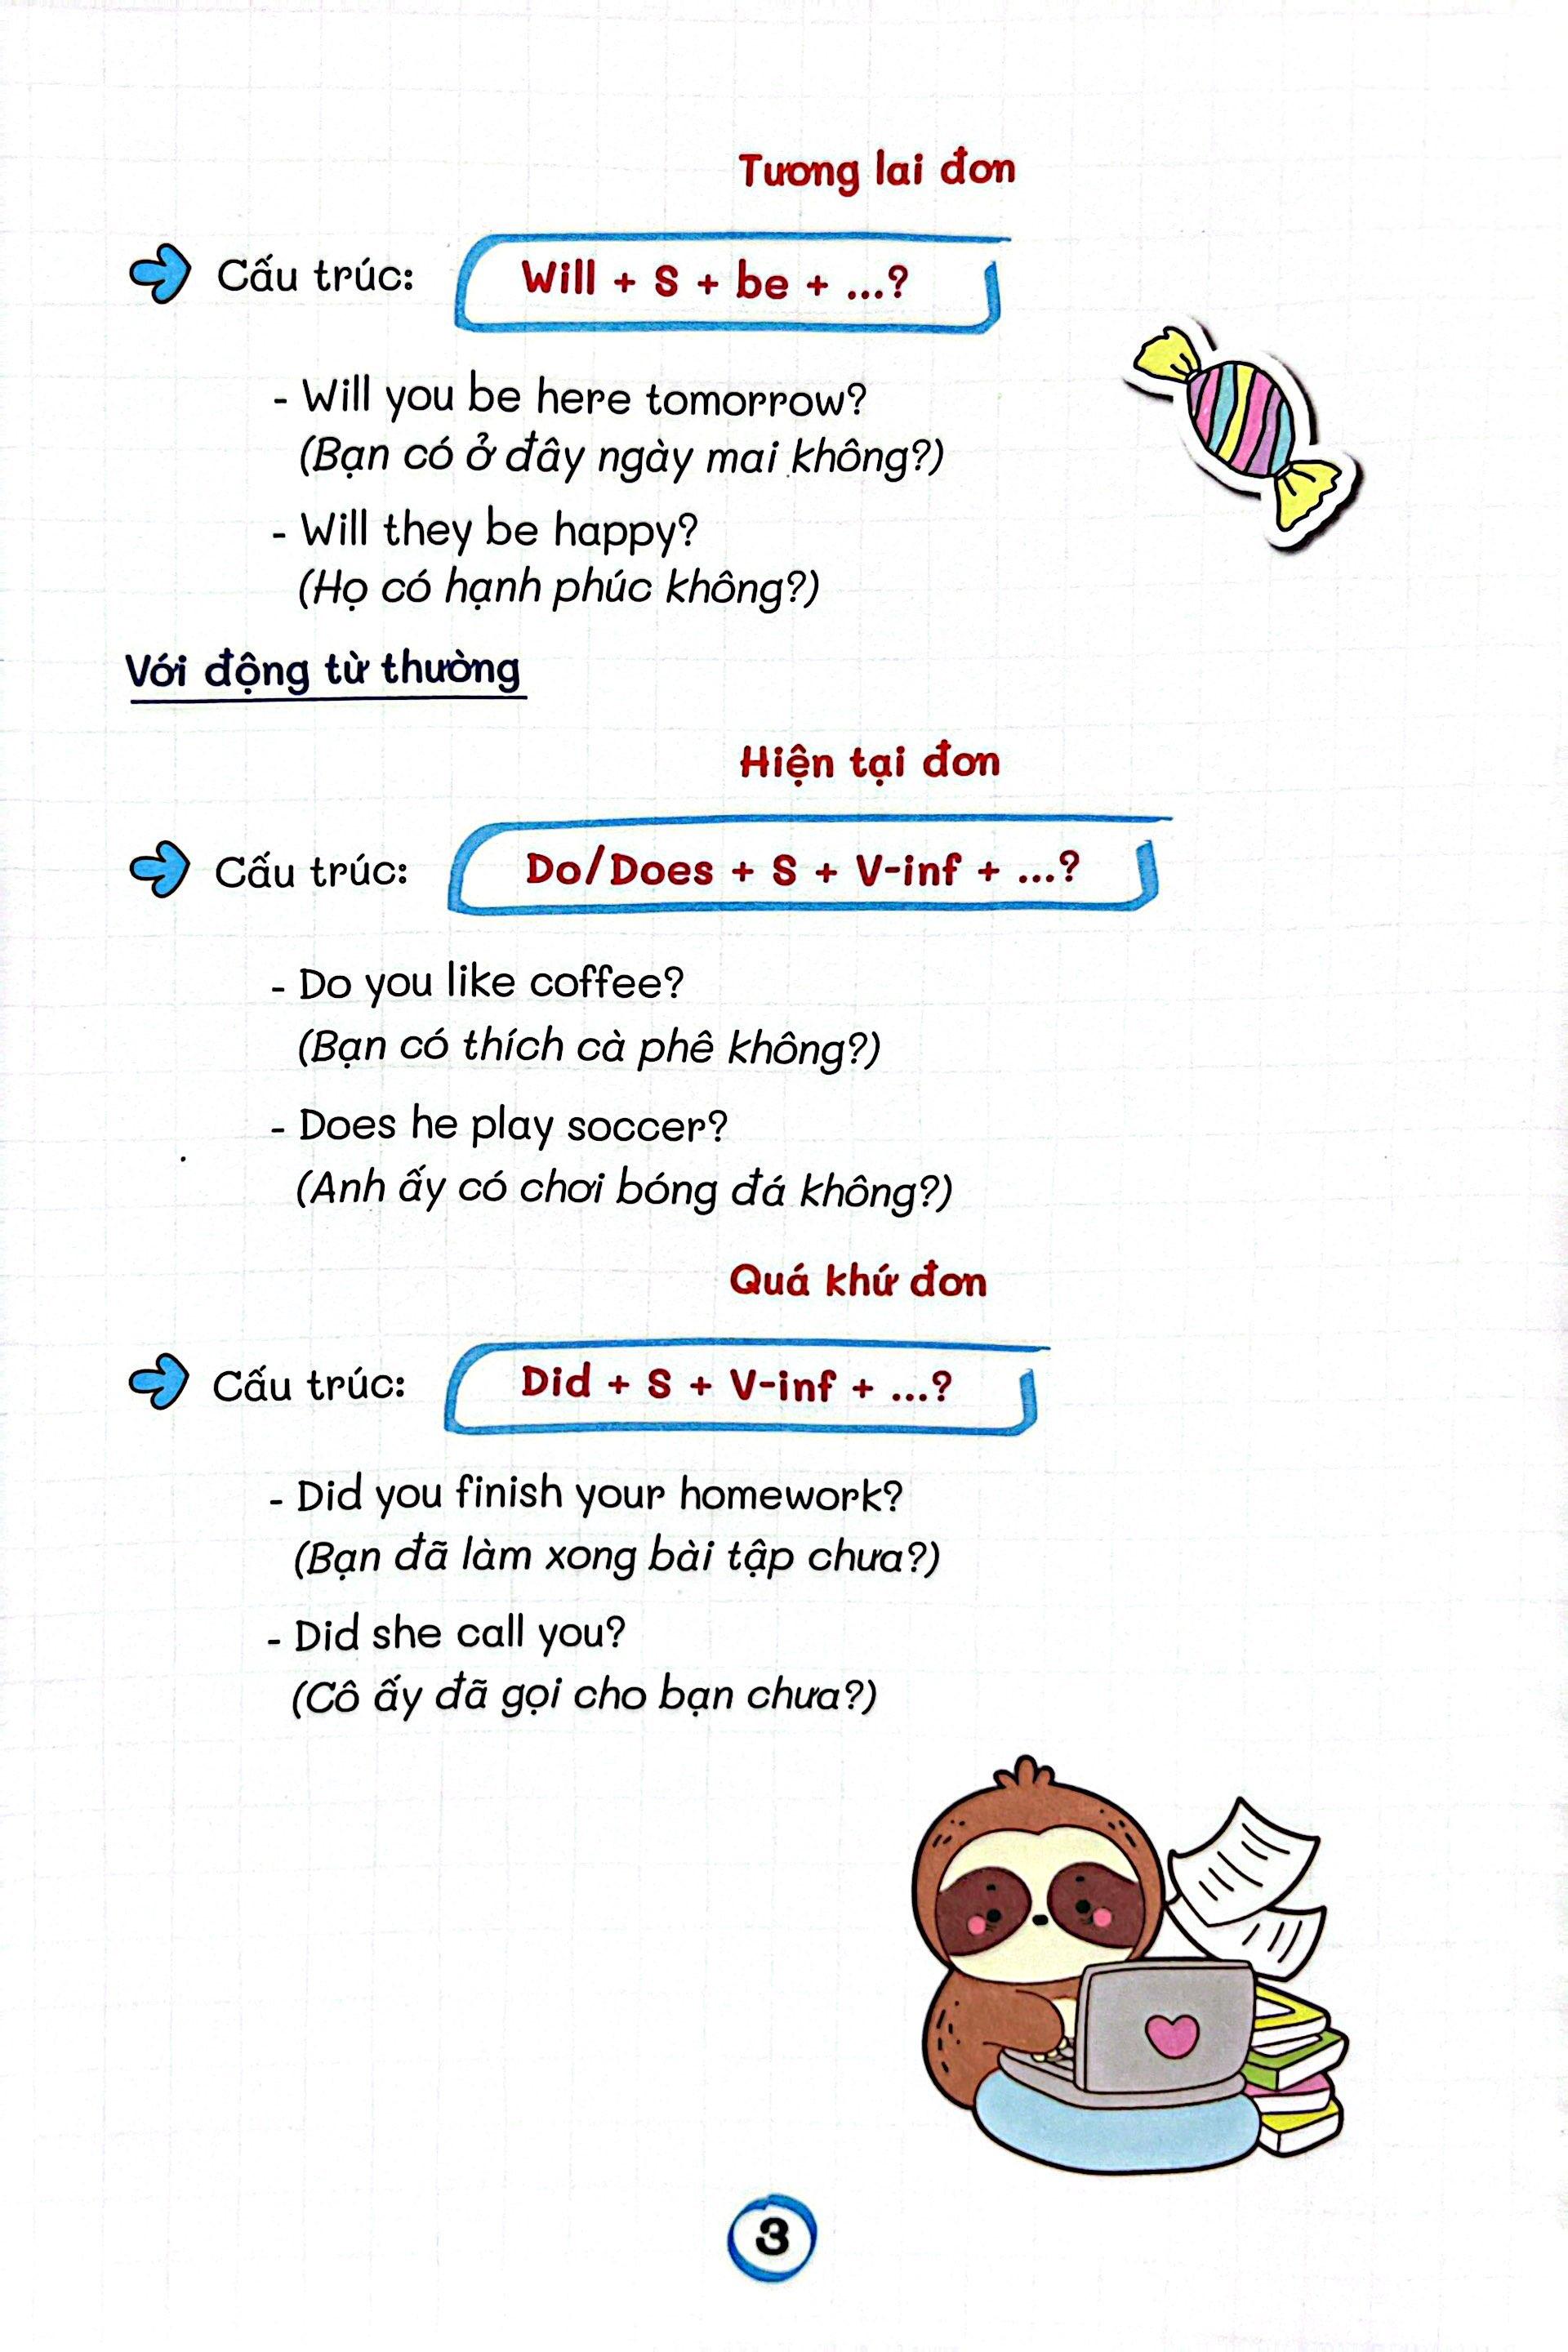 Tương lai đơn
Cấu trúc: Will + S + be + ...?
- Will you be here tomorrow?
(Bạn có ở đây ngày mai không?)
- Will they be happy?
(Họ có hạnh phúc không?)
Với động từ thường
Hiện tại đơn
Cấu trúc: Do/Does + S + V-inf + ...?
- Do you like coffee?
(Bạn có thích cà phê không?)
- Does he play soccer?
(Anh ấy có chơi bóng đá không?)
Quá khứ đơn
Cấu trúc: Did + S + V-inf + ...?
- Did you finish your homework?
(Bạn đã làm xong bài tập chưa?)
- Did she call you?
(Cô ấy đã gọi cho bạn chưa?)
3